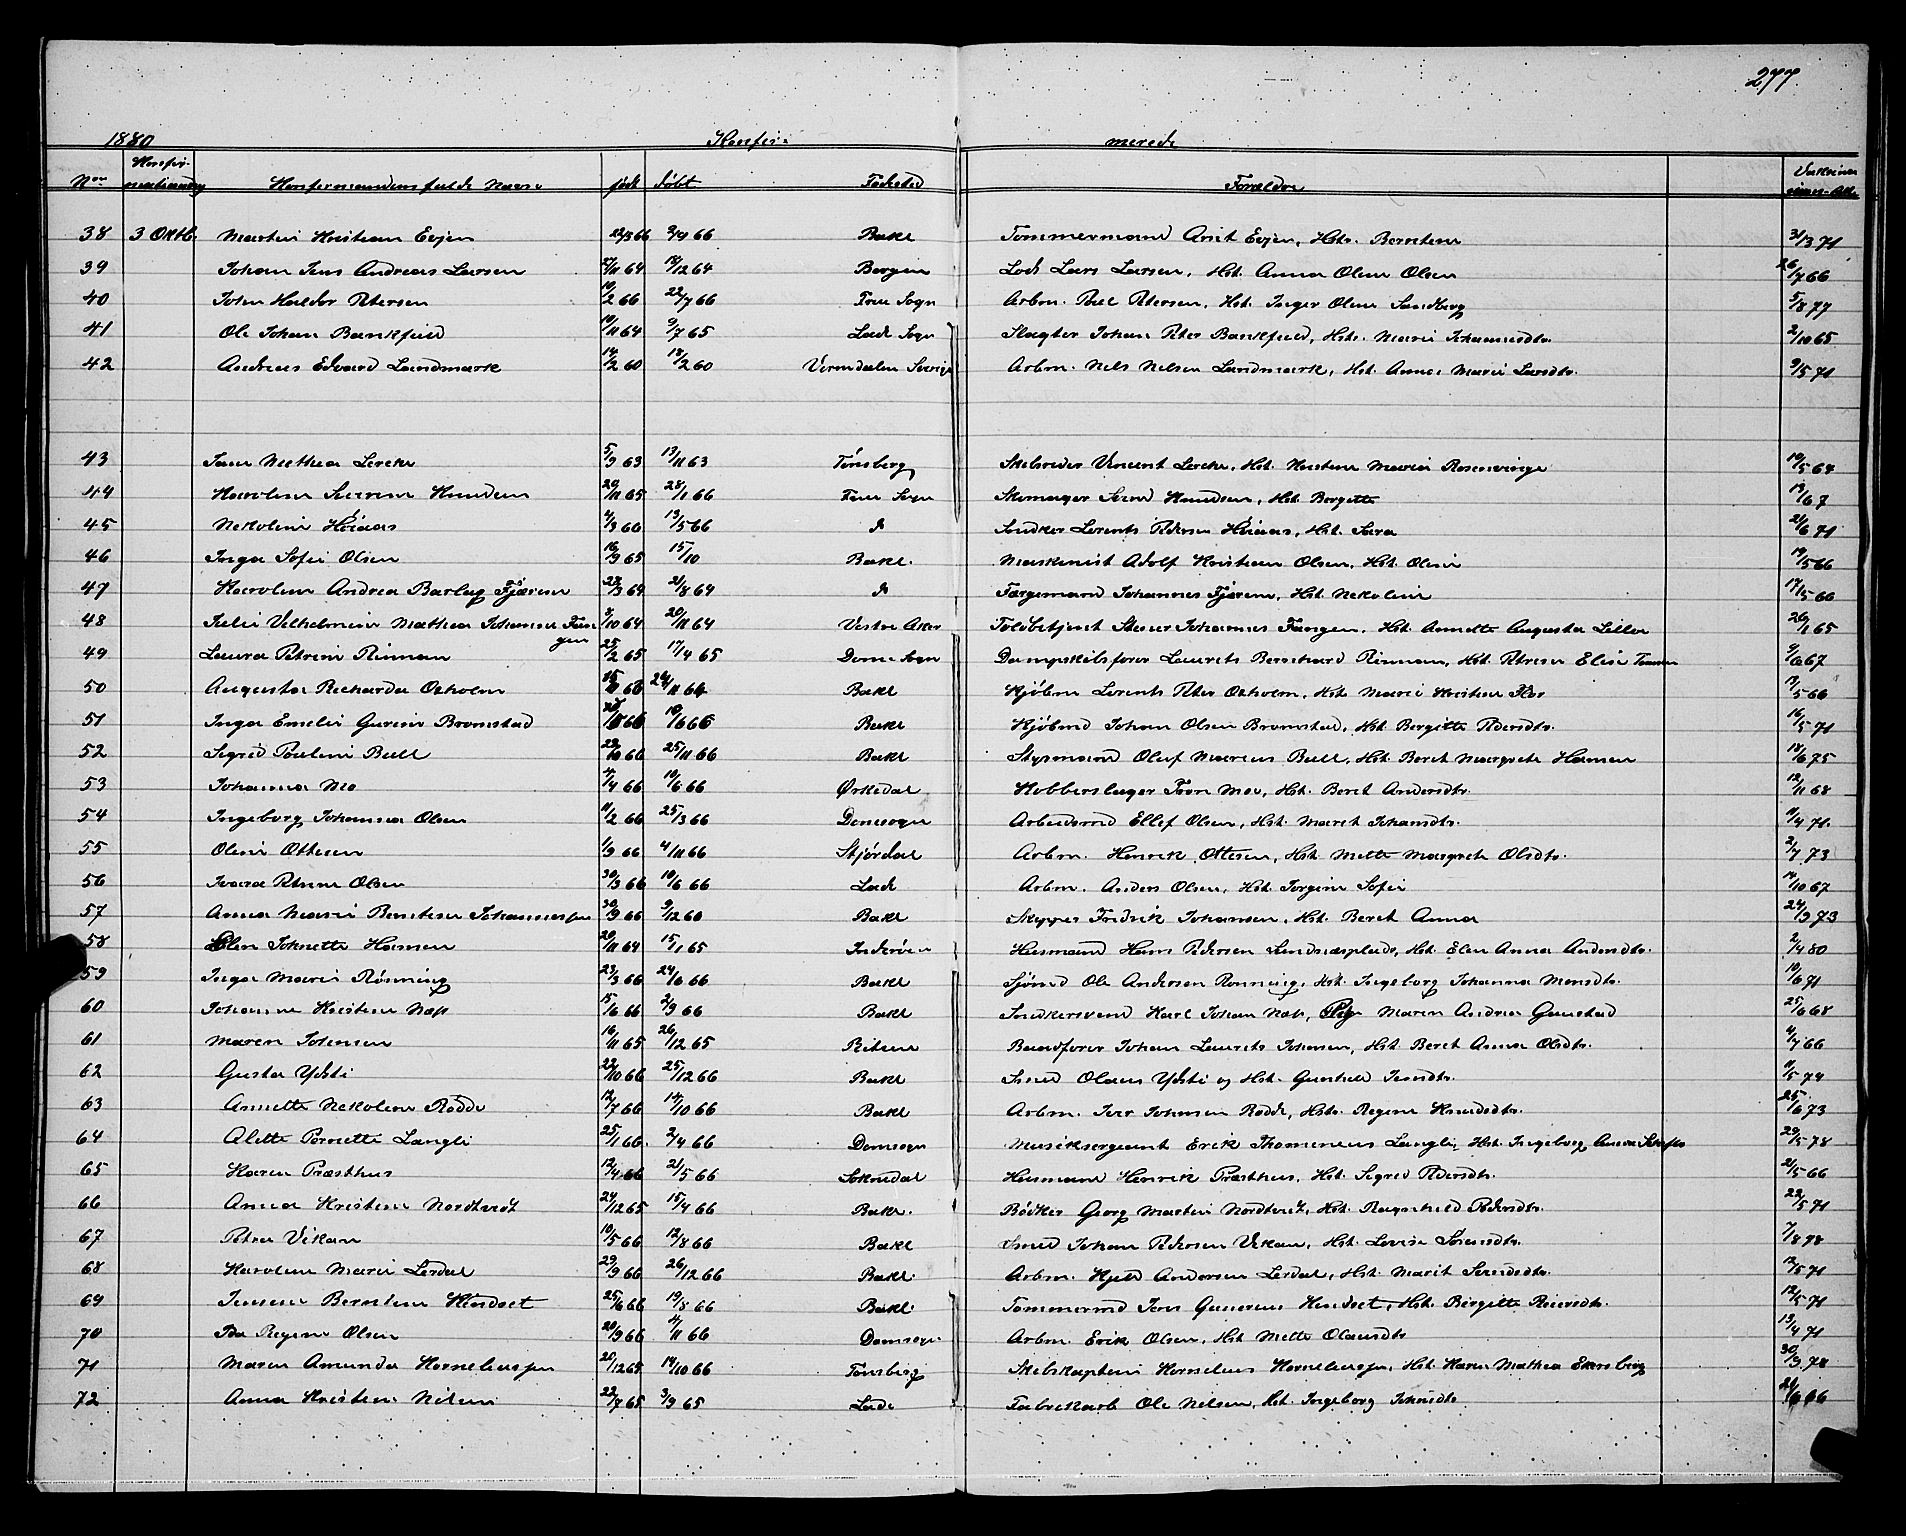 277.
1880 Konfir= merede
Nor Konfir- mationsdag Konfirmandens fulde Navn född döbt Födested Forældre Vakcina tions-Att.
38 3 Oktb. Martin Kristian Evjen 22/3 66 2/9 66 Bakl Tømmermand Arnt Evjen, Hst. Berntine 31/3 71
39 Johan Jens Andreas Larsen 27/11 64 12/12 64 Bergen Lods Lars Larsen, Hst. Anna Oline Olsen 26/7 66
40 John Haldor Petersen 10/2 66 22/7 66 Frue Sogn Arbm. Paul Petersen, Hst. Inger Oline Sandberg 5/8 77
41 Ole Johan Bankfeid 10/11 64 9/7 65 Lade Sogn Slagter Johan Peter Bankfeid, Hst. Marie Johannesdtr. 2/10 65
42 Andreas Edvard Landmark 14/2 60 18/2 60 Arbm. Nils Nilsen Landmark, Hst. Anna Marie Larsdtr. 9/5 71
43 Jane Mathea Lerche 5/9 63 13/11 63 Tönsberg Skibsreder Vincent Lerche, Hst. Kristine Maria Rosenvinge 10/5 64
44 Karoline Severine Knudsen 20/11 65 28/1 66 Frue Sogn Skomager Knudsen, Hst. Bergitte
45 Nikoline Höiaas 4/3 66 13/5 66 do Snedker Lorents Pedersen Höiaas, Hst. Sara 21/6 71
46 Inga Sofie Olsen 16/9 65 15/10 Bakl. Maskinist Adolf Kristian Olsen, Hst. Oline 19/5 66
47 Karoline Andrea Fjæren 21/8 64 do Færgemand Johannes Fjæren, Hst. Nikoline 17/5 66
48 Julie Vilhelmine Mathea Johanne Fangen 3/10 64 20/11 64 Vestre Aker Toldbetjent Johannes Fangen, Hst. Annette Augusta Liller 26/1 65
49 Laura Petrine Rinnan 25/2 65 17/4 65 Dome Sogn Dampskibsförer Laurits Bernhard Rinnan, Hst. Petrine Elise 9/6 67
50 Augusta Rickarda Oxholm Bakl Kjöbm Lorents Peter Oxholm, Hst. Marie Kristine 13/5 66
51 Inga Emelie Gurine Bromstad 10/6 66 Bakl Kjöbmd Johan Olsen Bromstad, Hst. Bergitte Pedersdtr. 16/5 71
52 Sigrid Pauline Bull 29/10 66 25/11 66 Bakl Styrmand Oluf Marius Bull, Hst. Beret Margrete Hansen 18/6 75
53 Johanna Mo 4/4 66 10/6 66 Ørkedal Kobberslager Mo, Hst. Beret Andersdtr. 12/11 68
54 Ingeborg Johanna Olsen 11/2 66 25/3 66 Domsogn Arbeidsmd Ellef Olsen, Hst. Maret Johansdtr. 11/4 71.
55 Oline Ottesen 1/9 66 4/11 66 Stjördal Arbm. Henrik Ottesen, Hst. Mette Margrete Olsdtr. 2/7 73
56 Ivara Petrine Olsen 30/3 66 10/6 66 Lade Arbm. Anders Olsen, Hst. Jorgine Sofie 14/10 67
57 Anna Marie Berntine Johannessen 30/9 66 9/12 66 Bakl Skipper Fredrik Johansen, Hst. Beret Anna 24/9 73
58 Elen Johnette Hansen 20/11 64 15/1 65 Inderöen Husmand Hans Pedersen, Hst. Elen Anna Andersdtr. 2/4 80
59 Inga Marie Rönning 23/3 66 24/6 66 Bakl Sjömd Ole Andersen Rönning, Hst. Ingeborg Johanna Monsdtr. 10/6 71
60 Johanne Kristine Næss 15/6 66 2/9 66 Bakl Snedkersvend Karl Johan Næss, Maren Andrea Gunstad 25/6 68
61 Maren Johansen 16/11 65 26/12 65 Ritsen Johan Laurits Johansen, Hst. Beret Anna Olsdtr. 4/7 66
62 Gusta Ydsti 22/10 66 25/12 66 Bakl Smed Olaus Ydsti og Hst. Gunhild Jensdtr. 11/5 74
63 Annette Nikoline Rodde 12/7 66 14/10 66 Bakl Arbm. Iver Johnsen Rodde, Hst. Regine Knudsdtr. 25/6 73
64 Alette Pernette Langli 25/1 66. 2/4 66 Domsogn Musiksergeant Erik Thomenius Langli, Hst. Ingeborg Anna 29/5 78
65 Karen Præsthus 12/4 66 21/5 66 Soknedal Husmand Henrik Præsthus, Hst. Sigrid Pedersdtr. 21/5 66
66 Anna Kristine Nordtvedt 24/12 65 15/4 66 Bakl. Bödker Georg Martin Nordtvedt, Hst. Ragnhild Pedersdtr. 22/5 71
67 Petra Vikan 10/5 66 12/8 66 Bakl Smed Johan Pedersen Vikan, Hst. Lovise 7/8 78
68 Karoline Marie Lerdal 29/9 66 26/12 66 Bakl. Arbm. Kjeld Andersen Lerdal, Hst. Marit 12/5 71
69 Jensine Berntine Hindset 25/6 66 19/8 66 Bakl. Tømmermd Jens Gunerius Hindset, Hst. Birgitte 12/5 71
70 Ida Regine Olsen 20/9 66 4/11 66 Domsogn. Arbm. Erik Olsen, Hst. Mette Olausdtr 13/4 71
71 Maren Amunda Korneliussen 20/12 65 14/10 66 Tönsberg Skibskaptein Kornelius Korneliussen, Hst. Karen Mathea Ekersberg 30/9 78
72 Anna Kristine Nilsen 22/7 65 3/9 65 Lade Fabrikarb Ole Nilsen, Hst. Ingeborg Johnsdtr